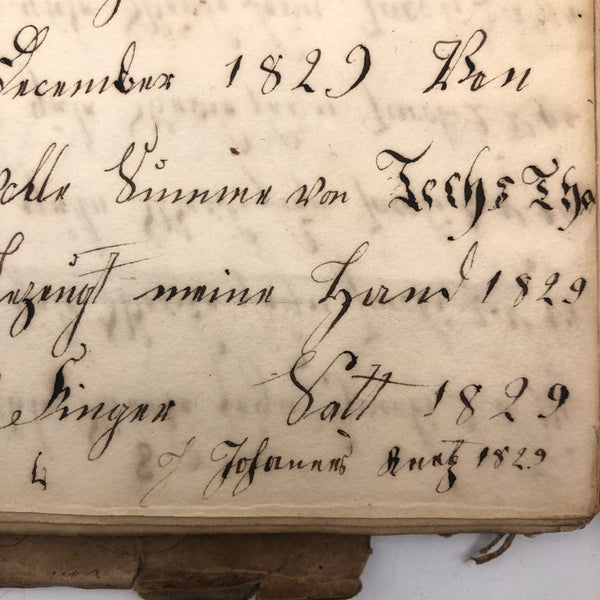 December 1829 Von
Summe von Sechs Tha
bezeugt meine Hand 1829
Singer Satt 1829
Johanes Kurtz 1829